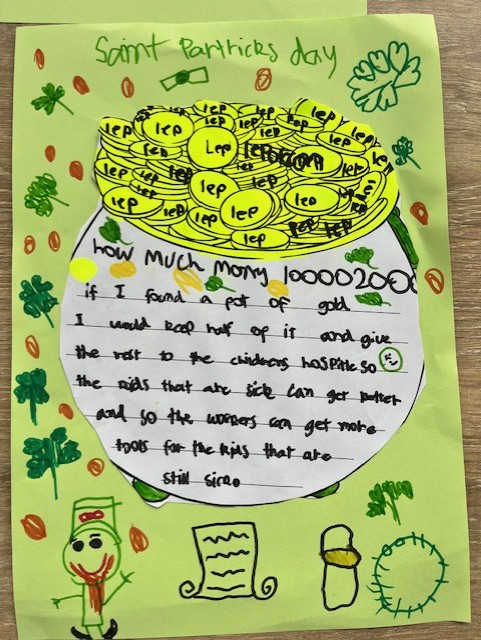 Saint Partricks day
lep lep lep lep
lep lep lep lep lep lep
lep lep lep
lep lep lep lep
lep lep lep lep
lep lep lep lep
lep lep lep
lep
how much momy 10000200
if I found a pot of gold
I would keep half of it and give
the rest to the chidrens hospitle so
the kids that are sick can get better
and so the workers can get more
tools for the kids that are
still sick.